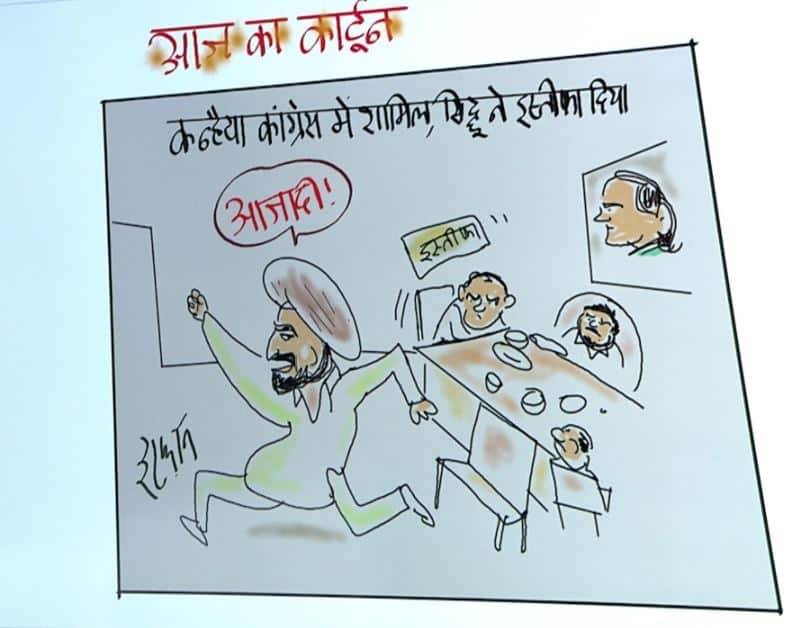 आज का कार्टून
कन्हैया कांग्रेस में शामिल, सिद्धू ने इस्तीफा दिया
आजादी!
इस्तीफा
इरफान